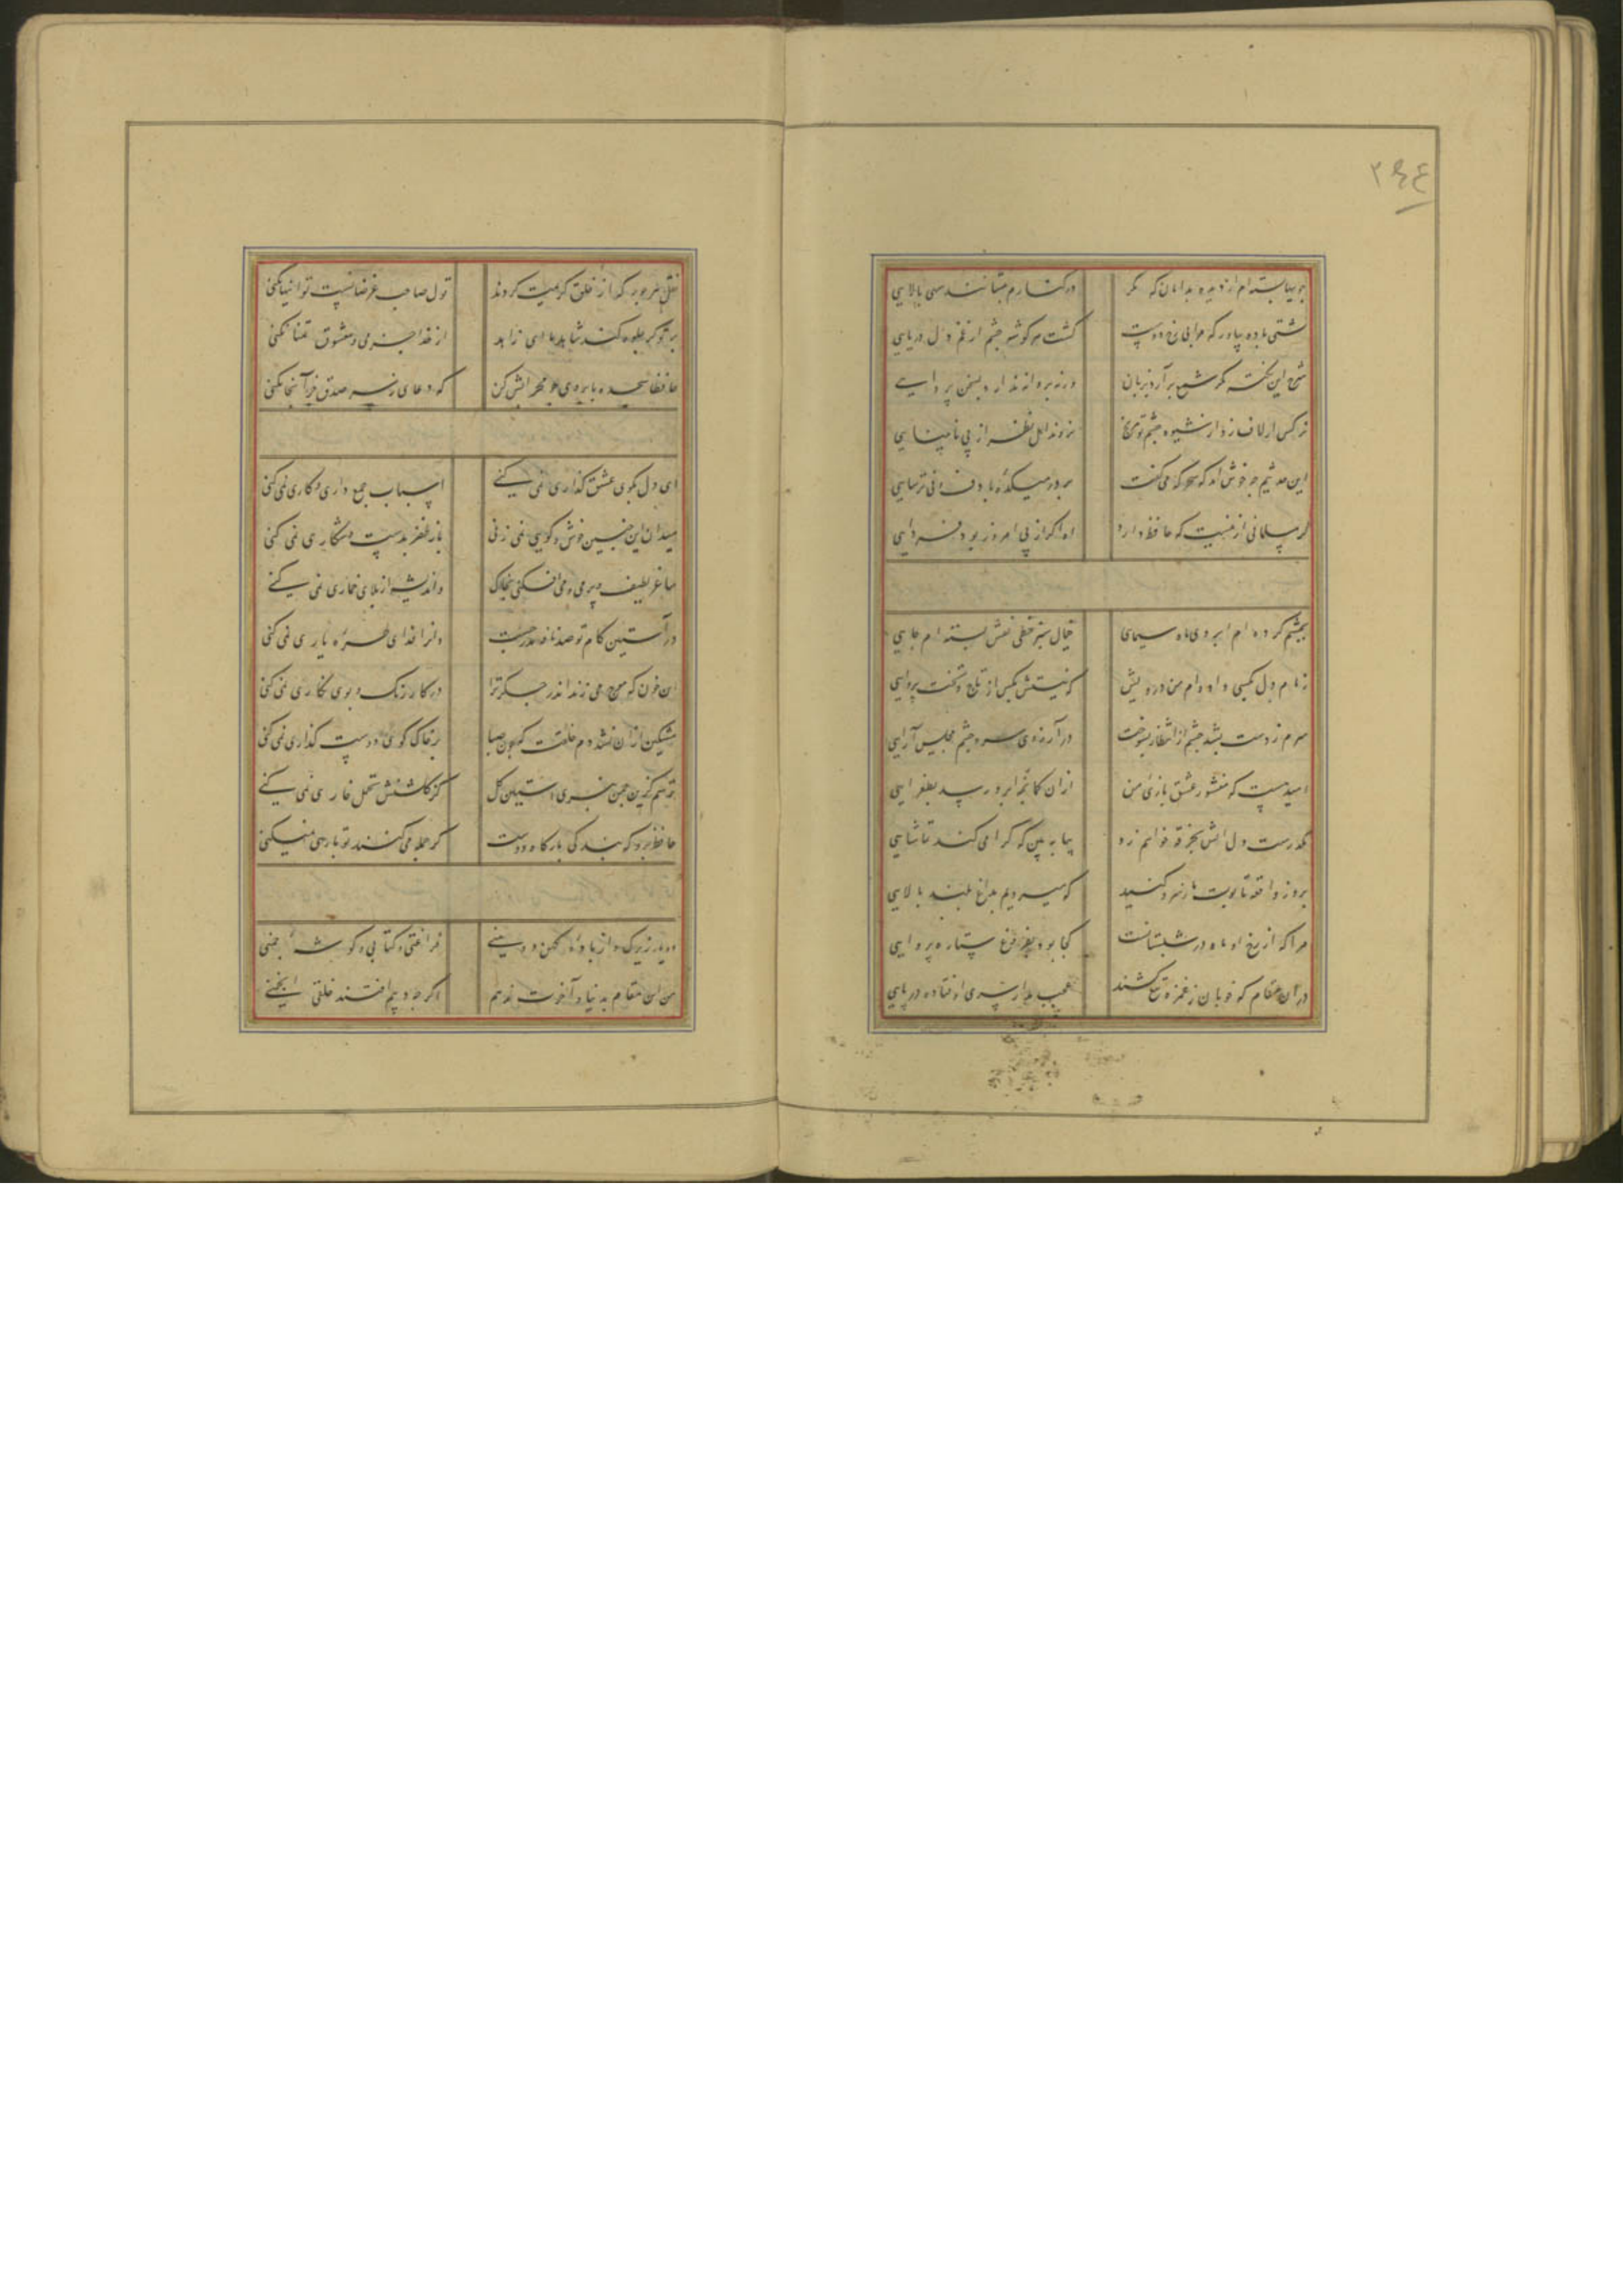 ۲۶۴
جویها بسته‌ام از دیده بدامان که مگر
در کنارم بنشانند سهی بالایی
کشتی باده بیاور که مرا بی رخ دوست
گشت هر گوشه چشم از غم دل دریایی
شرح این نکته مگر شمع برآرد بزبان
ورنه پروانه ندارد بسخن پروایی
نرگس ار لاف زد از شیوه چشم تو مرنج
نروند اهل نظر از پی نابینایی
این حدیثم چه خوش آمد که سحرگه می گفت
بر در میکده با دف و نی ترسایی
گر مسلمانی ازینست که حافظ دارد
آه اگر از پی امروز بود فردایی
بچشم کرده‌ام ابروی ماه سیمای
خیال سبز خطی نقش بسته‌ام جایی
زمام دل بکسی داده‌ام من درویش
که نیستش بکس از تاج و تخت پروایی
سرم ز دست بشد چشم از انتظار بسوخت
در آرزوی سر و چشم مجلس آرایی
امیدست که منشور عشق بازی من
از آن کمانچه ابرو رسد بطغرایی
مکدرست دل آتش بخرقه خواهم زد
بیا ببین که کرا می کند تماشایی
بروز واقعه تابوت ما ز سرو کنید
که میرویم بداغ بلند بالایی
مرا که از رخ او ماه در شبستانست
کجا بود بفروغ ستاره پروایی
در آن مقام که خوبان ز غمزه تیغ کشند
عجب مدار سری اوفتاده در پایی
نقل هر جور که از خلق کریمت کردند
قول صاحب غرضانست تو آنها نکنی
بر تو گر جلوه کند شاهد ما ای زاهد
از خدا جز می و معشوق تمنا نکنی
حافظا سجده بابروی چو محرابش کن
که دعای ز سر صدق جز آنجا نکنی
ای دل بکوی عشق گذاری نمی کنی
اسباب جمع داری و کاری نمی کنی
میدان این چنین خوش و گویی نمی زنی
باز ظفر بدست و شکاری نمی کنی
ساغر لطیف و پر می و می افکنی بخاک
و اندیشه از بلای خماری نمی کنی
در آستین کام تو صد نافه مدرجست
وانرا فدای طره یاری نمی کنی
این خون که موج می زند اندر جگر ترا
در کار رنگ و بوی نگاری نمی کنی
مشکین از آن نشد دم خلقت که چون صبا
بر خاک کوی دوست گذاری نمی کنی
ترسم کزین چمن نبری آستین گل
کز گلشنش تحمل خاری نمی کنی
حافظ برو که بندگی بارگاه دوست
گر جمله می کنند تو باری نمیکنی
دو یار زیرک و از باده کهن دو منی
فراغتی و کتابی و گوشه چمنی
من این مقام به دنیا و آخرت ندهم
اگرچه در پیم افتند خلقی انجمنی